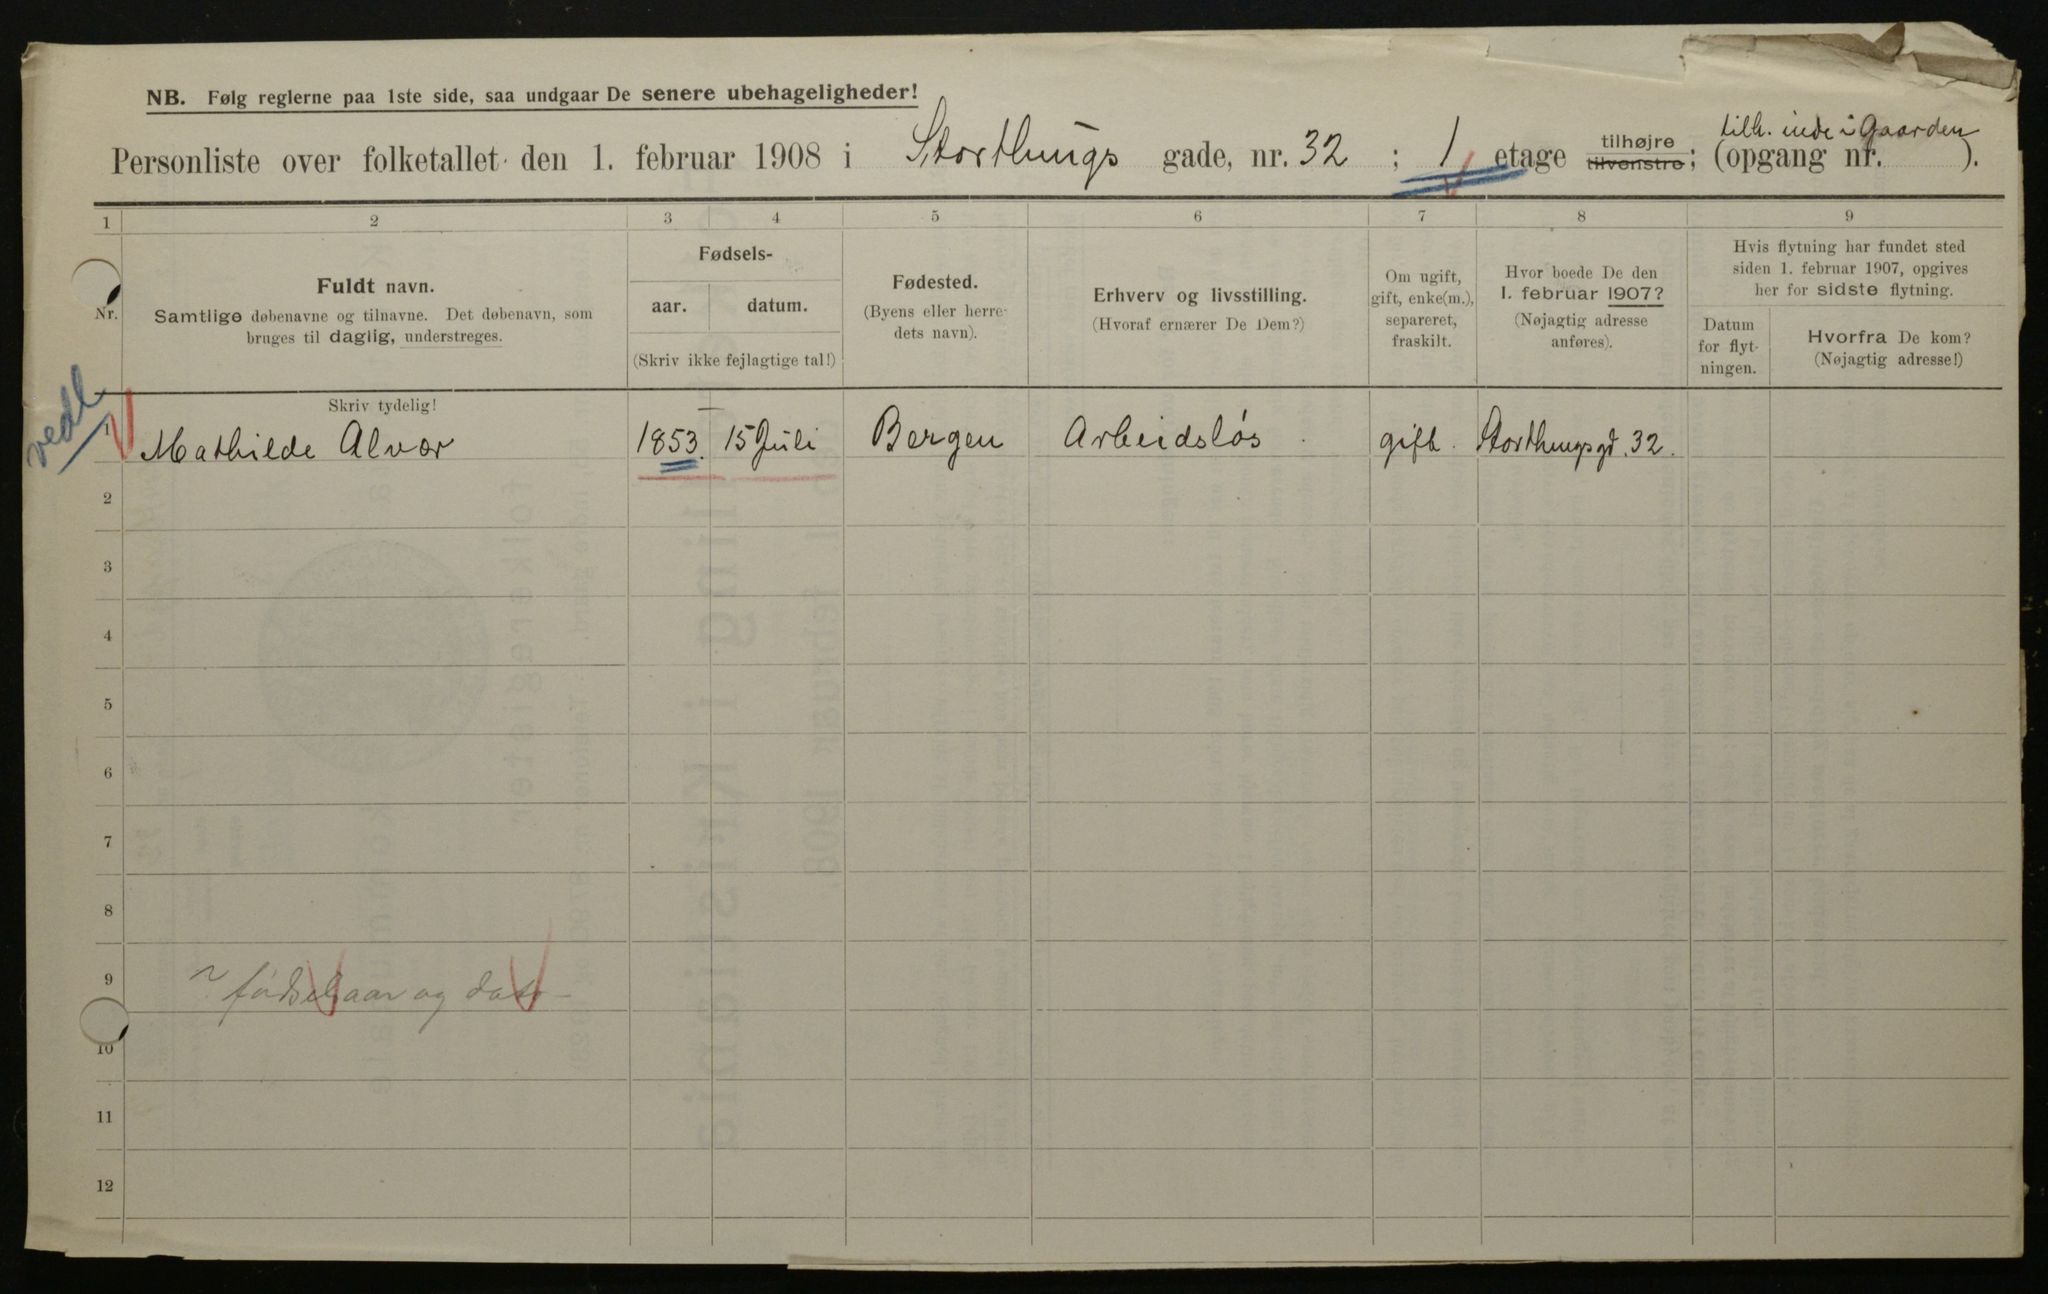 NB. Følg reglerne paa 1ste side, saa undgaar De senere ubehageligheder!
tilh. inde i Gaarden
Personliste over folketallet den 1. februar 1908 i Storthings gade, nr. 32 ; 1 etage tilhøjre tilvenstre; (opgang nr. ).
1 2 3 4 5 6 7 8 9
Nr.
Fuldt navn.
Samtlige døbenavne og tilnavne. Det døbenavn, som
bruges til daglig, understreges.
Fødsels-
aar. datum.
(Skriv ikke fejlagtige tal!)
Fødested.
(Byens eller herre-
dets navn).
Erhverv og livsstilling.
(Hvoraf ernærer De Dem?)
Om ugift,
gift, enke(m.),
separeret,
fraskilt.
Hvor boede De den
1. februar 1907?
(Nøjagtig adresse
anføres).
Hvis flytning har fundet sted
siden 1. februar 1907, opgives
her for sidste flytning.
Datum
for flyt-
ningen.
Hvorfra De kom?
(Nøjagtig adresse!)
Skriv tydelig!
vedl
1 Mathilde Alvær 1853. 15 Juli Bergen Arbeidsløs gift. Storthingsgd. 32.
2
3
4
5
6
7
8
9
fødselsaar og dato
10
11
12